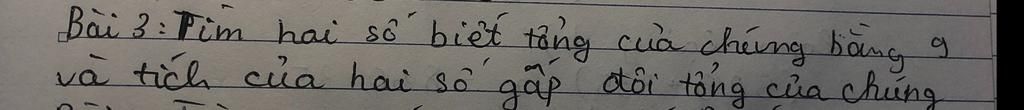 Bài 3: Tìm hai số biết tổng của chúng bằng 9
và tích của hai số gấp đôi tổng của chúng